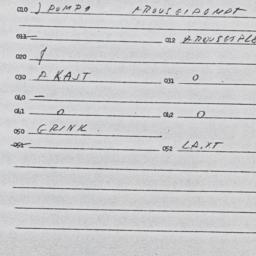 010 ) POMPO AROUSSIPOMPT
011 012 AROUSSIPLE
020 1
030 A KAST 031 0
040 —
041 0 042 0
050 GRINK
051 052 LA.XT